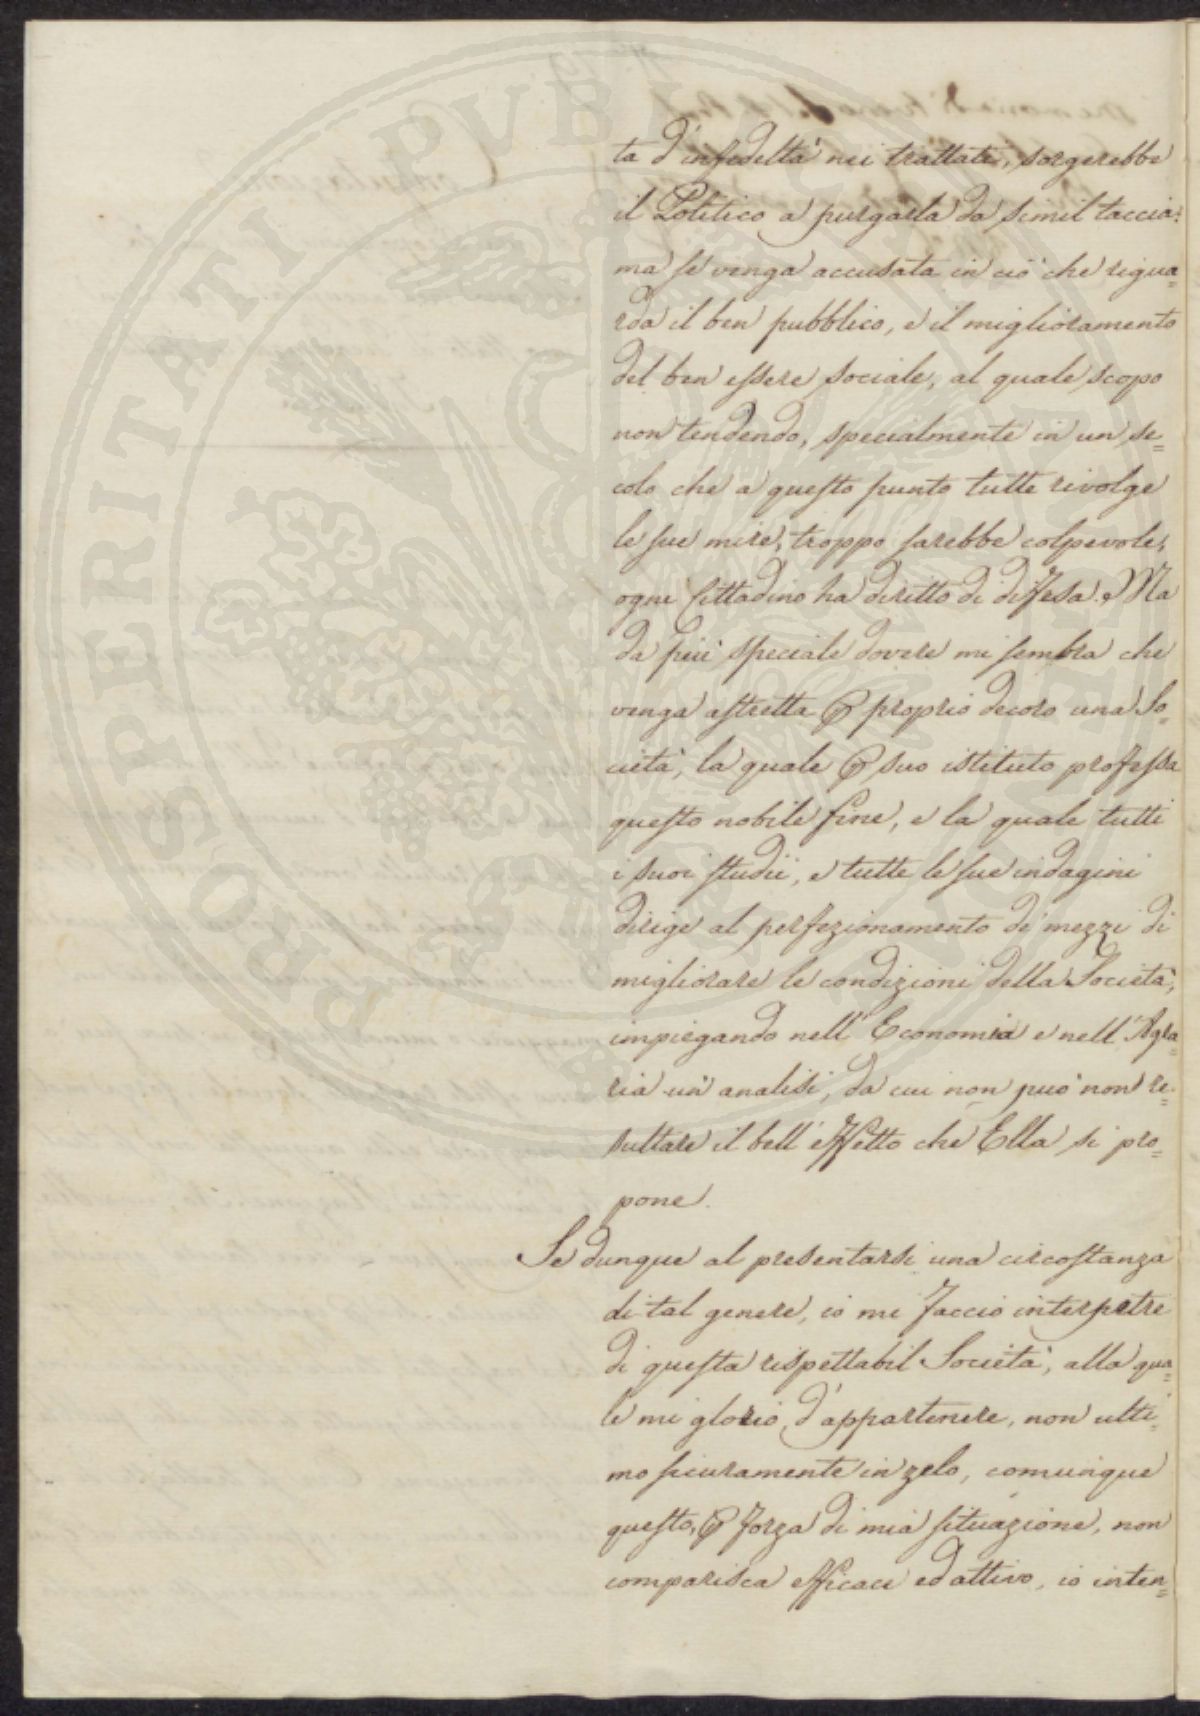 ta d'infedeltà nei trattati, sorgerebbe
il Politico a purgarla da simil taccia:
ma se venga accusata in ciò che rigua=
rda il ben pubblico, e il miglioramento
del ben essere sociale, al quale scopo
non tendendo, specialmente in un se=
colo che a questo punto tutte rivolge
le sue mire, troppo sarebbe colpevole,
ogni Cittadino ha diritto di difesa. Ma
da più speciale dovere mi sembra che
venga astretta ꝑ proprio decoro una So=
cietà, la quale ꝑ suo istituto professa
questo nobile fine, e la quale tutti
i suoi studii, e tutte le sue indagini
dirige al perfezionamento de' mezzi di
migliorare le condizioni della Società,
impiegando nell'Economia e nell'Agra=
ria un'analisi, da cui non può non re=
sultare il bell'effetto che Ella si pro=
pone.
Se dunque al presentarsi una circostanza
di tal genere, io mi faccio interpetre
di questa rispettabil Società, alla qua=
le mi glorio d'appartenere, non ulti=
mo sicuramente in zelo, comunque
questo, ꝑ forza di mia situazione, non
comparisca efficace ed attivo, io inten=
PROSPERITATI PUBLICAE